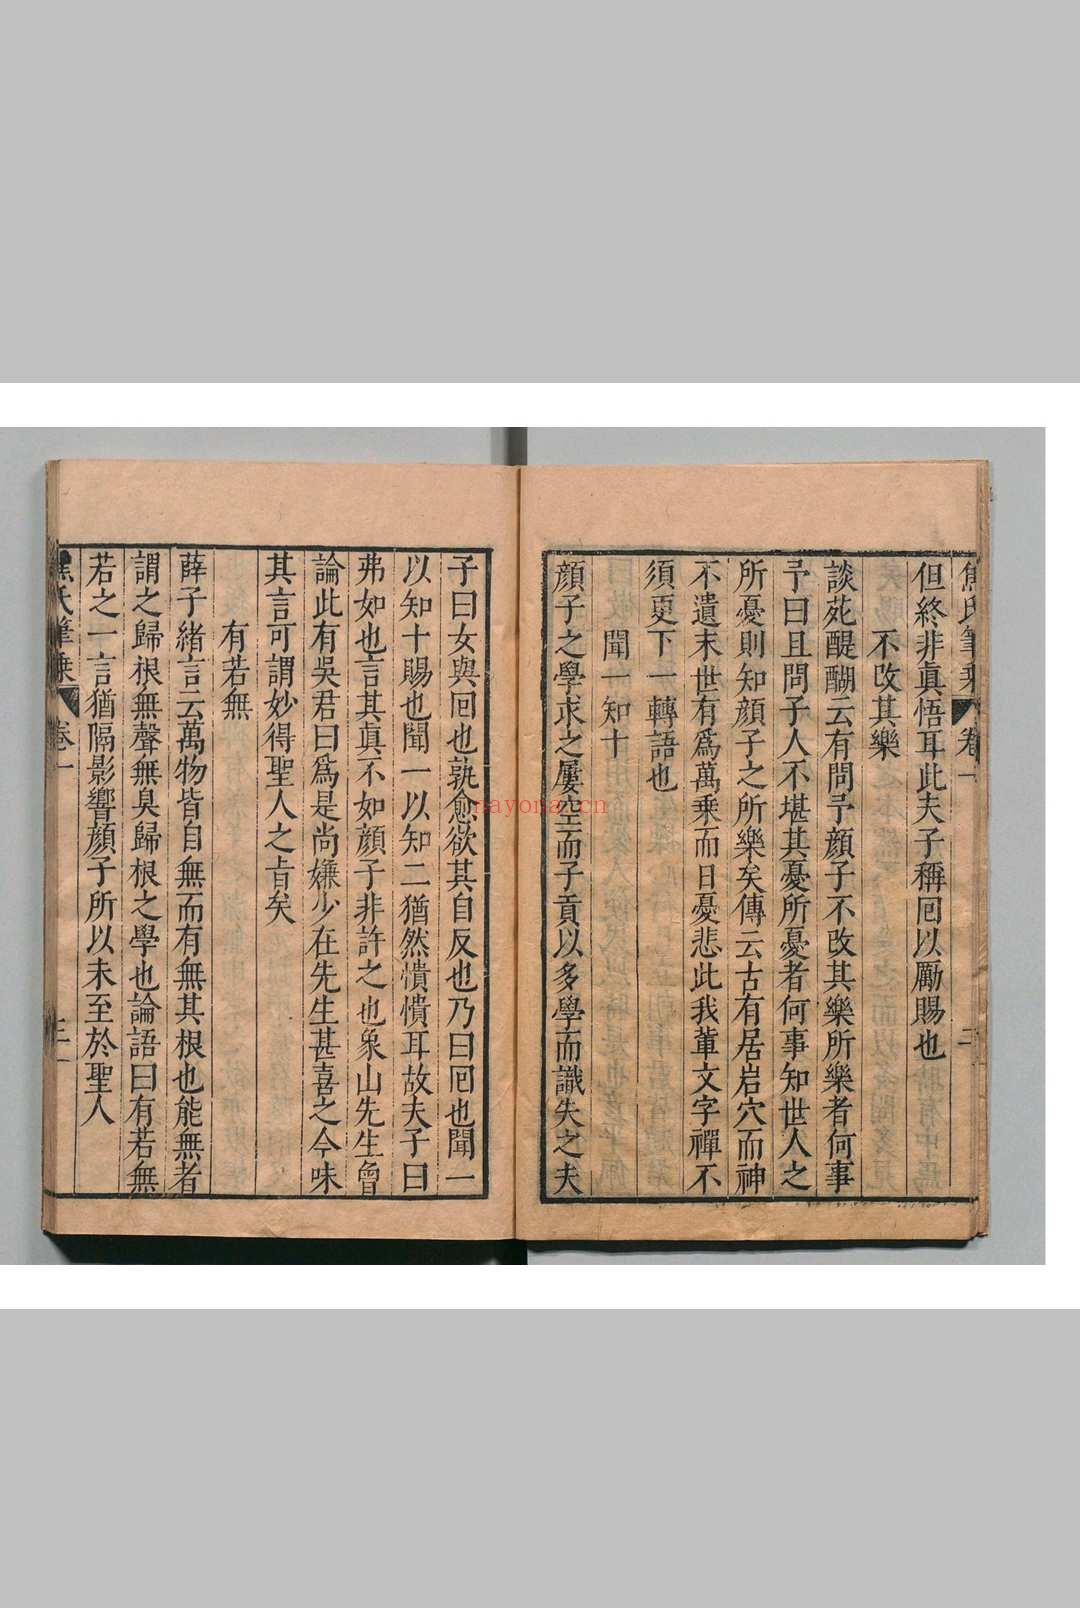 焦氏筆乘
卷一
二
但終非眞悟耳此夫子稱囘以勵賜也
不改其樂
談苑醍醐云有問予顔子不改其樂所樂者何事
予曰且問子人不堪其憂所憂者何事知世人之
所憂則知顔子之所樂矣傳云古有居岩穴而神
不遺末世有爲萬乘而日憂悲此我軰文字禪不
須更下一轉語也
聞一知十
顔子之學求之屢空而子貢以多學而識失之夫
子曰女與囘也孰愈欲其自反也乃曰囘也聞一
以知十賜也聞一以知二猶然憒憒耳故夫子曰
弗如也言其眞不如顔子非許之也象山先生曾
論此有吳君曰爲是尚嫌少在先生甚喜之今味
其言可謂妙得聖人之㫖矣
有若無
薛子緒言云萬物皆自無而有無其根也能無者
謂之歸根無聲無臭歸根之學也論語曰有若無
若之一言猶隔影響顔子所以未至於聖人
焦氏筆乘
卷一
nayona.cn